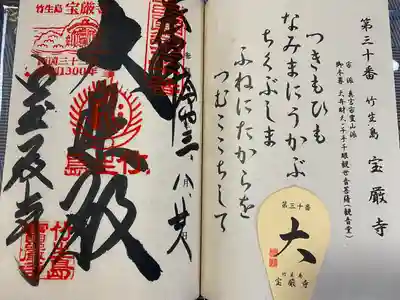 第三十番 竹生島 宝厳寺
宗派 真言宗豊山派
御本尊 大弁財天・千手千眼観世音菩薩(観音堂)
つきもひも
なみまにうかぶ
ちくぶしま
ふねにたからを
つむここちして
第三十番
大
竹生島
宝厳寺
奉拝
大悲殿
竹生島 宝厳寺
1300年
竹生島